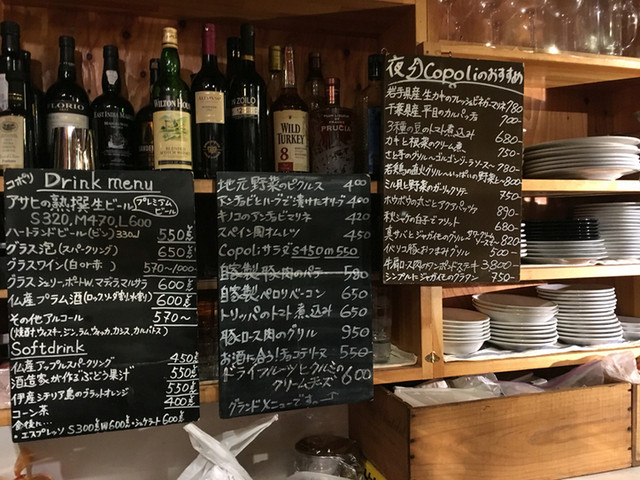 コポリ Drink menu
アサヒの熟撰生ビール プレミアムビール
S320,M470,L600
ハートランドビール(ビン)330ml 550
グラス泡(スパークリング) 650
グラスワイン(白or赤) 570~1000-
グラスシェリー・ポートW.マディラマルサラ 600
仏産プラム酒(ロック,ソーダ割り,水割り) 600
その他アルコール 570~
(焼酎,ウィスキー,ジン,ラム,ウォッカ,カシス,カルバドス)
Softdrink
仏産アップルスパークリング 450
酒造家が作るぶどう果汁 550
伊産シチリア島のブラッドオレンジ 550
コーン茶 400
食後に…
・エスプレッソ S300 W600・ショケラート600
地元野菜のピクルス 400
アンチョビとハーブで漬けたオリーブ 400
キノコのアンチョビマリネ 420
スペイン風オムレツ 450
Copoliサラダ S450 m550
自家製豚肉のパテ 580
自家製ペロリベーコン 650
トリッパのトマト煮込み 650
豚ロース肉のグリル 950
お酒に合う!チョコテリーヌ 550-
ドライフルーツとクルミの
クリームチーズ 600
グランドメニューです。
夜のCopoliのおすすめ
岩手県産 生カキのフレッシュビネガーソース 780
千葉県産 平目のカルパッチョ 700-
3種の豆のトマト煮込み 680-
カキと根菜のクリーム煮 750
さと芋のグリル~ゴルゴンゾーラソース~ 780
ミル貝と野菜のガーリックソテー 780-
890-
秋ジャケの白子ミツレット 680-
真サバとジャガイモのグリル サワークリームソース 820
イベリコ豚 グリル 500
牛肩ロース肉のタンポドステーキ 3,800-
シンプルにジャガイモのグラタン 750
FLORIO
EAST INDIA
WILTON HOUSE
NZOILO
WILD
TURKEY
8
PRUCIA